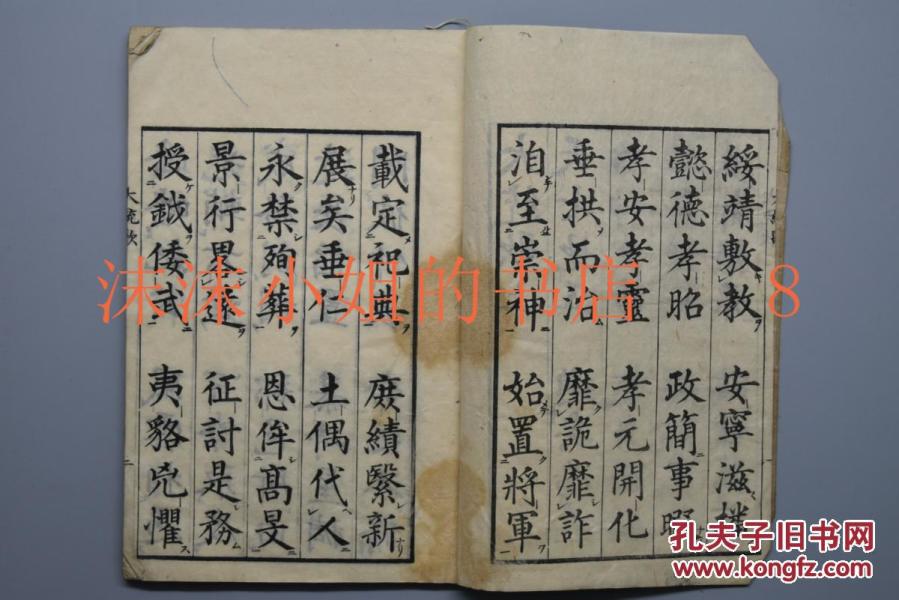 綏靖敷教 安寧滋
懿德孝昭 政簡事暇
孝安孝靈 孝元開化
垂拱而治 靡詭靡詐
洎至崇神 始置將軍
載定祀典 庶績繫新
展矣垂仁 土偶代人
永禁殉葬 恩侔高旻
景行畧遠 征討是務
授鉞倭武 夷貉兇懼
大統歌
沫沫小姐的书店 8
孔夫子旧书网
www.kongfz.com